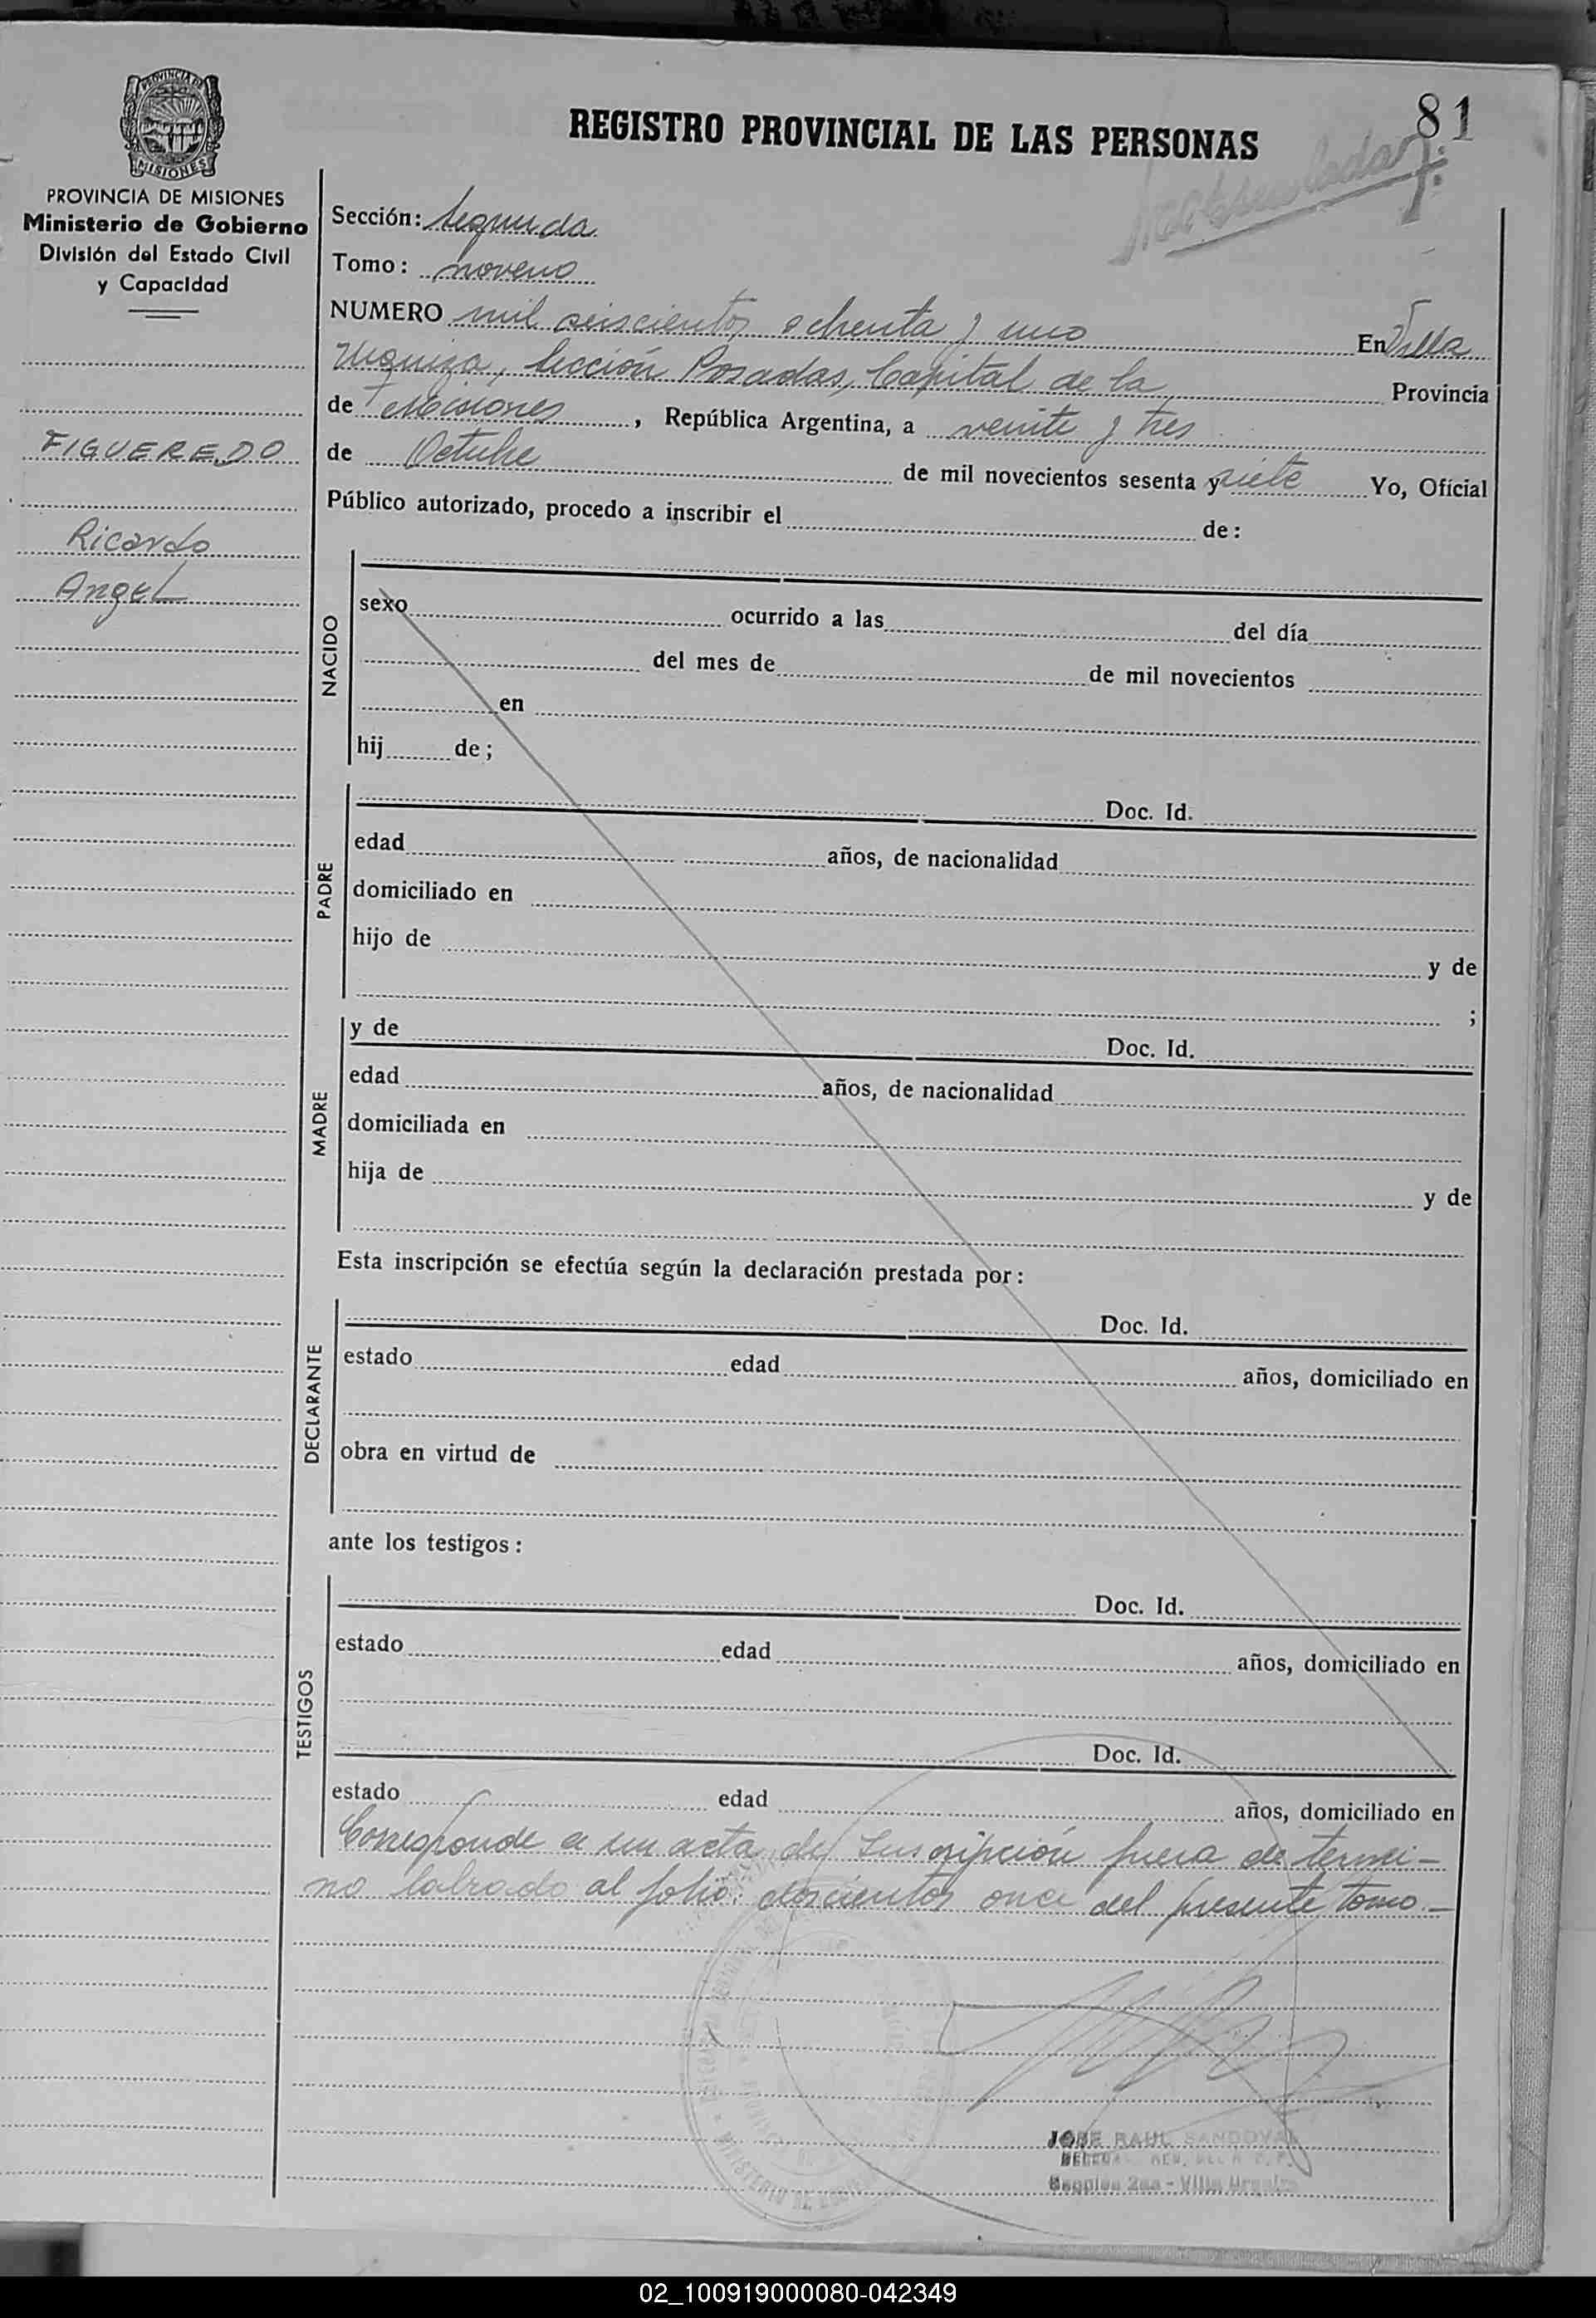 81
REGISTRO PROVINCIAL DE LAS PERSONAS
PROVINCIA DE MISIONES
MISIONES
PROVINCIA DE MISIONES
Ministerio de Gobierno
División del Estado Civil
y Capacidad
FIGUEREDO
Ricardo
Angel
Sección: Segunda
Tomo: noveno
NUMERO mil seiscientos ochenta y uno En Villa
Urquiza, Sección Posadas, Capital de la Provincia
de Misiones, República Argentina, a veinte y tres
de Octubre de mil novecientos sesenta y siete Yo, Oficial
Público autorizado, procedo a inscribir el de:
NACIDO
sexo ocurrido a las del día
del mes de de mil novecientos
en
hij de;
PADRE
Doc. Id.
edad años, de nacionalidad
domiciliado en
hijo de y de
;
MADRE
y de Doc. Id.
edad años, de nacionalidad
domiciliada en
hija de y de
Esta inscripción se efectúa según la declaración prestada por:
DECLARANTE
Doc. Id.
estado edad años, domiciliado en
obra en virtud de
ante los testigos:
TESTIGOS
Doc. Id.
estado edad años, domiciliado en
Doc. Id.
estado edad años, domiciliado en
Corresponde a un acta de Inscripción fuera de termi-
no labrado al folio: doscientos once del presente tomo.-
JOSE RAUL SANDOVAL
02_100919000080-042349